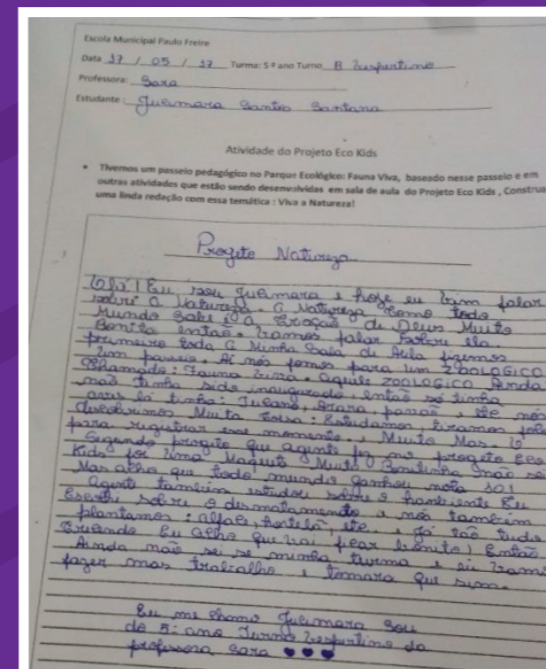 Escola Municipal Paulo Freire
Data 17 / 05 / 17 Turma: 5 º ano Turno B Vespertino
Professora: Sara
Estudante: Jucimara Santos Santana
Atividade do Projeto Eco Kids
• Tivemos um passeio pedagógico no Parque Ecológico: Fauna Viva, baseado nesse passeio e em
outras atividades que estão sendo desenvolvidas em sala de aula do Projeto Eco Kids , Construa
uma linda redação com essa temática : Viva a Natureza!
Progeto Natureza
Olá! Eu sou Jucimara e hoje eu vim falar
sobri a Natureza. A Natureza como todo
Mundo Sabe é a Criação de Deus Muito
Bonita então vamos falar sobre ela.
primeiro toda a Minha Sala de Aula fizemos
um passeio. Ai nós fomos para um ZOOLOGICO
Chamado: Fauna Viva. Aquele ZOOLOGICO Ainda
não tinha sido inaugurado, então só tinha
aves lá tinha: Tucano, Arara, pavão, etc nós
descobrimos Muita Coisa: Estudamos, tiramos foto
para registrar esse momento, Muito Mas. O
Segundo progeto que agente fez no progeto Eco
Kids foi uma Maquete Muito Bonitinha não sei
Mas acho que todo mundo ganhou nota 10!
Agente também estudou sobre o Eu
Escolhi sobre o desmatamento e nós também
plantamos: alface, hortelã, etc e já tão tudo
Criando Eu Acho que vai ficar bonito! Então
Ainda não sei se minha turma e eu vamos
fazer mas trabalho e tomara que sim.
Eu me chamo Jucimara Sou
do 5º ano Turno Vespertino da
professora Sara ♥♥♥